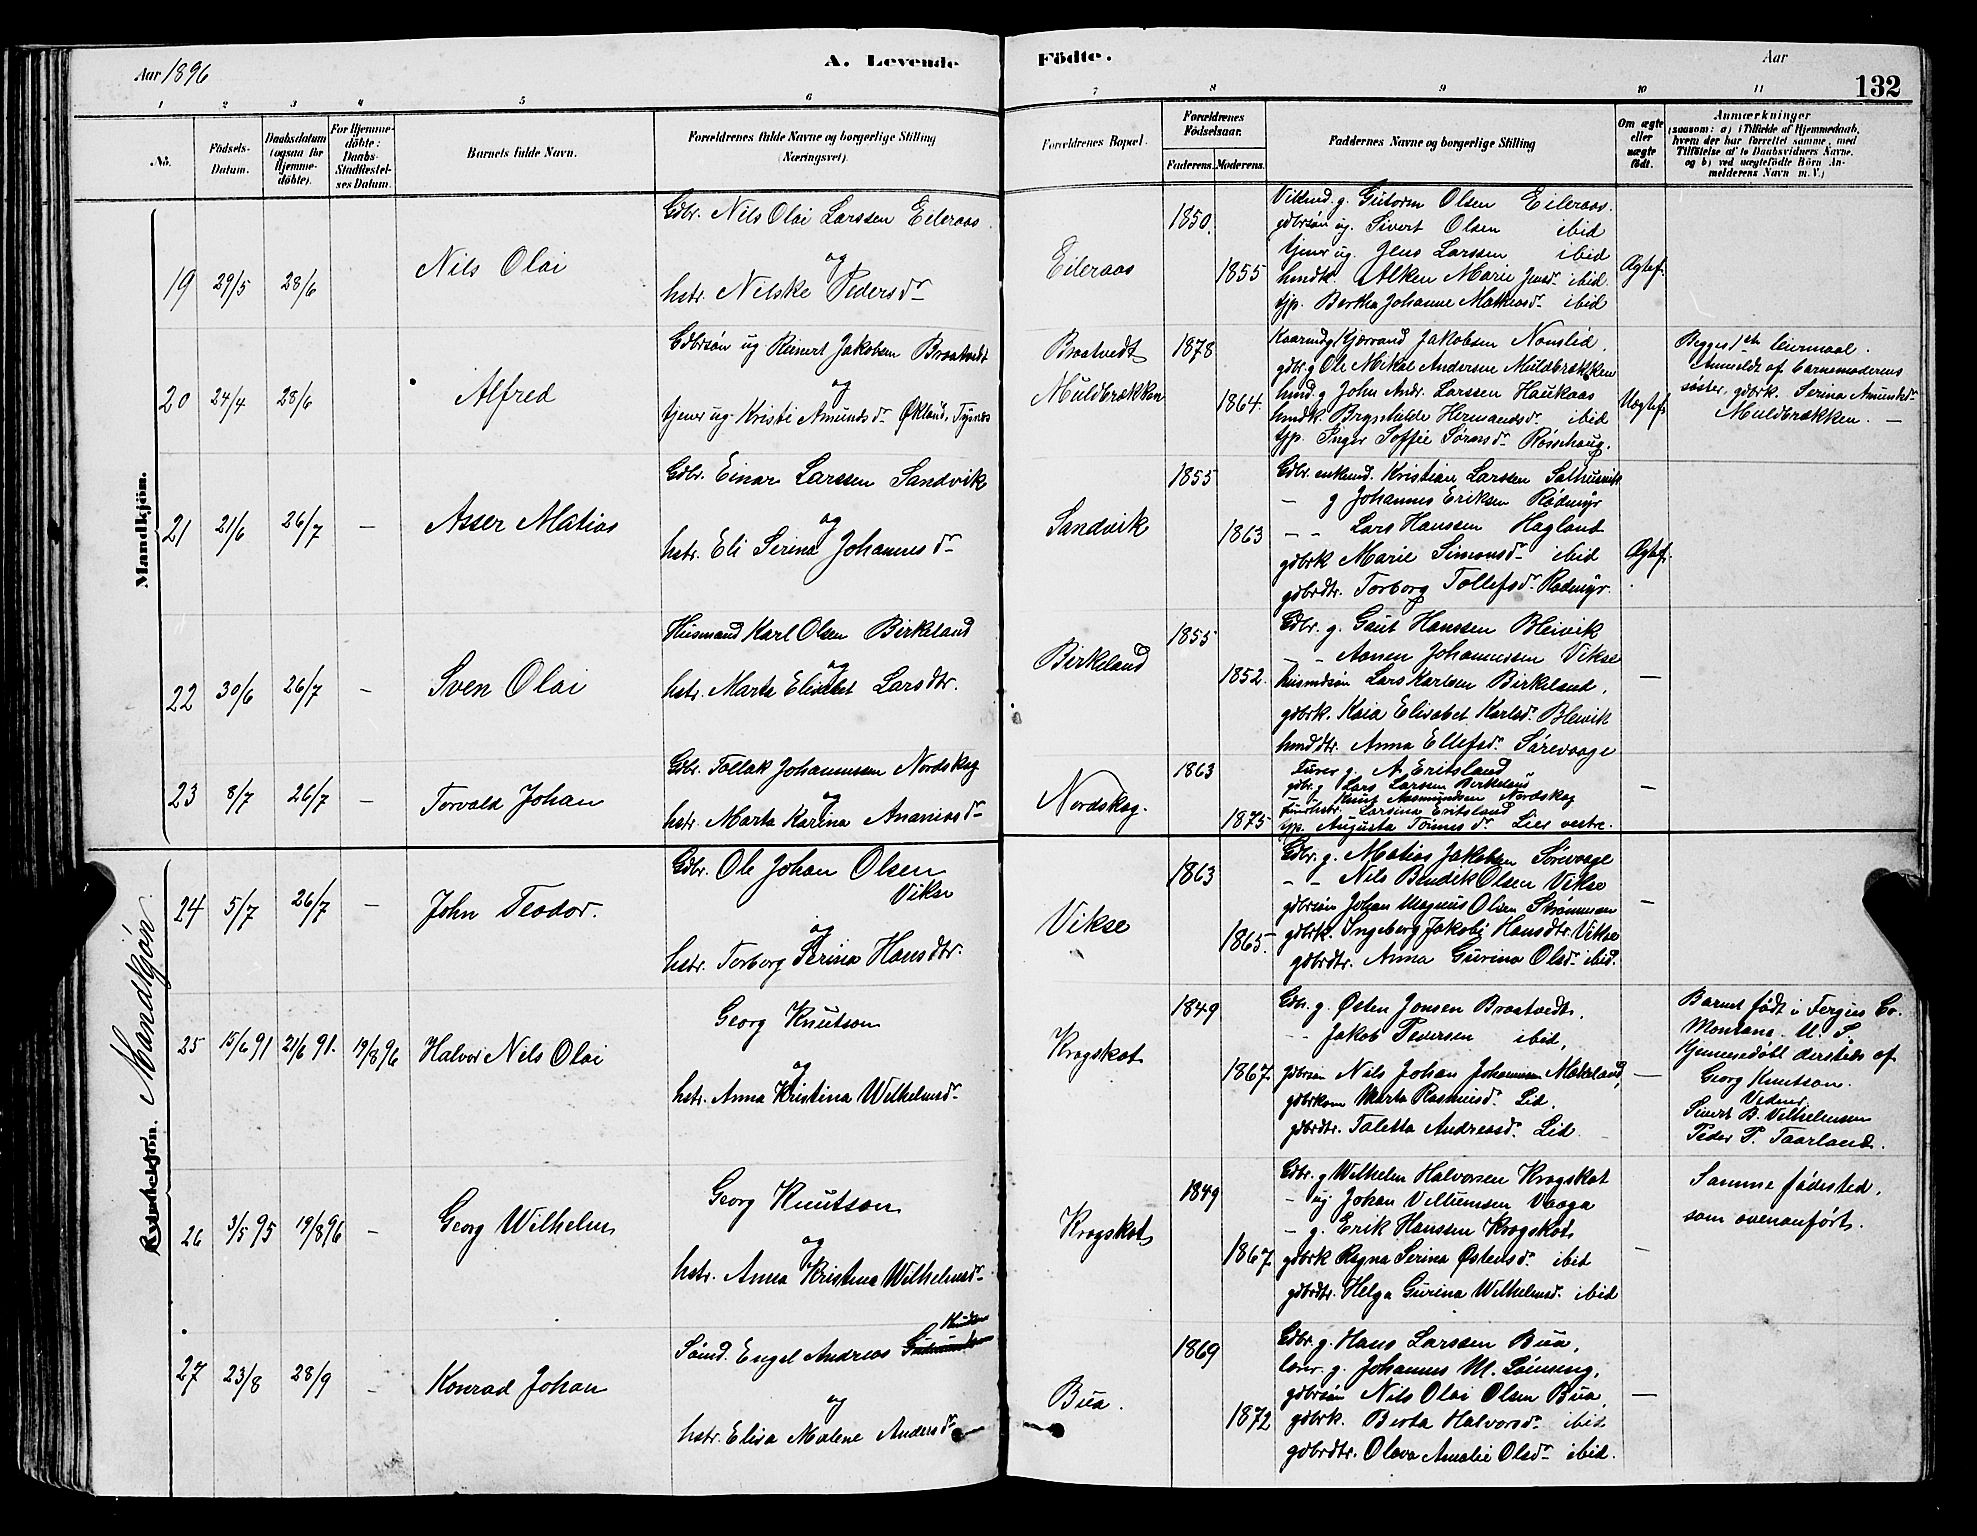 Aar 1896
A. Levende
Födte.
Aar
132
1 2 3 4 5 6 7 8 9 10 11
No.
Födsels-Datum.
Daabsdatum (ogsaa for Hjemme-döbte).
For Hjemme-döbte: Daabs-Stadfæstel-ses Datum.
Barnets fulde Navn.
Forældrenes fulde Navne og borgerlige Stilling (Næringsvei).
Forældrenes Bopæl.
Forældrenes Födselsaar.
Faderens. Moderens.
Faddernes Navne og borgerlige Stilling
Om ægte eller uægte födt.
Anmærkninger
(saasom: a) i Tilfælde af Hjemmedaab,
hvem der har forrettet samme, med
Tilföielse af to Daabsvidners Navne,
og b) ved uægtefödte Börn An-
melderens Navn m. V.)
Mandkjön.
19 29/5 28/6 Nils Olai
Gdbr. Nils Olai Larssen Eileraas
og
hstr. Nilske Pedersdr
Eileraas 1850. 1855
g. Gutorm Olsen Eileraas.
gdbrsön ug. Sivert Olsen ibid
tjener ug. Jens Larssen ibid
hmdk. Alken Marie Jensd. ibid.
tjp. Bertha Johanne Matiasd. ibid
Ægtef.
20 24/4 28/6 Alfred
Gdbrsön ug Reinert Jakobsen Braatvedt
og
tjener ug. Kristi Amundsdr Økland, Tysnes
Braatvedt
Muldbrækken 1878 1864.
Kaarmd g Kjorrand Jakobsen Nonslid.
gdbr. g Ole Mikal Andersen Muldbrækken
hmd. g John Andr. Larssen Haukaas
hmdk. Brynhilde Hermandsd. ibid
tjp. Inger Soffie Sørensd. Røsshaug.
Uægtef.
Begges 1ste leiermaal.
Anmeldt af barnemoderens
søster, gdbrk. Serina Amundsdr
Muldbrækken. —
21 21/6 26/7 — Asser Matias
Gdbr. Einar Larssen Sandvik
og
hstr. Eli Serina Johannesdr
Sandvik 1855 1863
Gdbr. enkemd. Kristian Larssen Salhusvik
— g Johannes Eriksen Rødmyr
— - Lars Hanssen Hagland
gdbrk Marie Simonsd. ibid
gdbrdtr. Torborg Tollefsd. Rødmyr.
Ægtef.
22 30/6 26/7 — Sven Olai
Husmand Karl Olsen Birkeland
og
hstr. Marta Elisabet Larsdtr.
Birkeland 1855 1852.
Gdbr. g. Gaut Hanssen Bleivik
- - Aanen Johannessen Vikse
husmdsön Lars Karlsen Birkeland,
gdbrk. Kaia Elisabet Karlsd. Bleivik
hmddtr. Anna Ellefsd. Sørevaage
—
23 8/7 26/7 — Torvald Johan
Gdbr. Tollak Johannessen Nordskog
og
hstr. Marta Karina Ananiasdr
Nordskog. 1863 1875
g. A. Eritsland
gdbr. g Lars Larssen Birkeland
- - Knut Aasmundsen Nordskog
Larsina Eritsland
tjp. Augusta Tönnesdr Lier vestre.
—
Mandkjøn
24 5/7 26/7 — John Teodor.
Gdbr. Ole Johan Olsen
Vikse
og
hstr. Torborg Serina Hansdtr.
Vikse 1863 1865.
Gdbr. g. Matias Jakobsen Sørevaage
- - Nils Bendik Olsen Vikse
gdbrsön Johan Magnus Olsen Strömmen
gdbrk. Ingeborg Jakobi Hansdtr. Vikse
gdbrdtr. Anna Gurina Olsd. ibid.
—
25 15/6 91 21/6 91. 19/8 96 Halvor Nils Olai
Georg Knutson
og
hstr. Anna Kristina Wilhelmsd.
Krogskot 1849 1867.
Gdbr. g. Østen Jonsen Braatvedt.
- - Jakob Pedersen ibid,
gdbrsön Nils Johan Johannessen Makeland,
gdbrkone Marta Rasmusd. Lid.
gdbrdtr. Taletta Andreasd. Lid.
—
Barnet født i Fergus Co.
Montana. U. S.
Hjemmedøbt dersteds af
Georg Knutson.
Vidner
Sivert B. Vilhelmsen
Peder P. Taarland.
Kvindekjön.
26 3/5 95 19/8 96 — Georg Wilhelm
Georg Knutson
og
hstr. Anna Kristina Wilhelmsd.
Krogskot 1849 1867.
Gdbr. g Wilhelm Halvorsen Krogskot
- ug Johan Villumsen Vaaga
- g. Erik Hanssen Krogskot,
gdbrk Ragna Serina Østensd. ibid
gdbrdtr. Helga Gurina Wilhelmsd. ibid
—
Samme fødested,
som ovenanført.
27 23/8 28/9 — Konrad Johan
Sömd. Engel Andreas Knudsen
og
hstr. Elisa Malene Andersdr
Bua. 1869 1872
Gdbr. g. Hans Larssen Bua,
lærer g. Johannes M. Lönning,
gdbrsön Nils Olai Olsen Bua,
gdbrk. Berta Halvorsd. ibid
gdbrdtr. Olava Amalie Olsd. ibid.
—